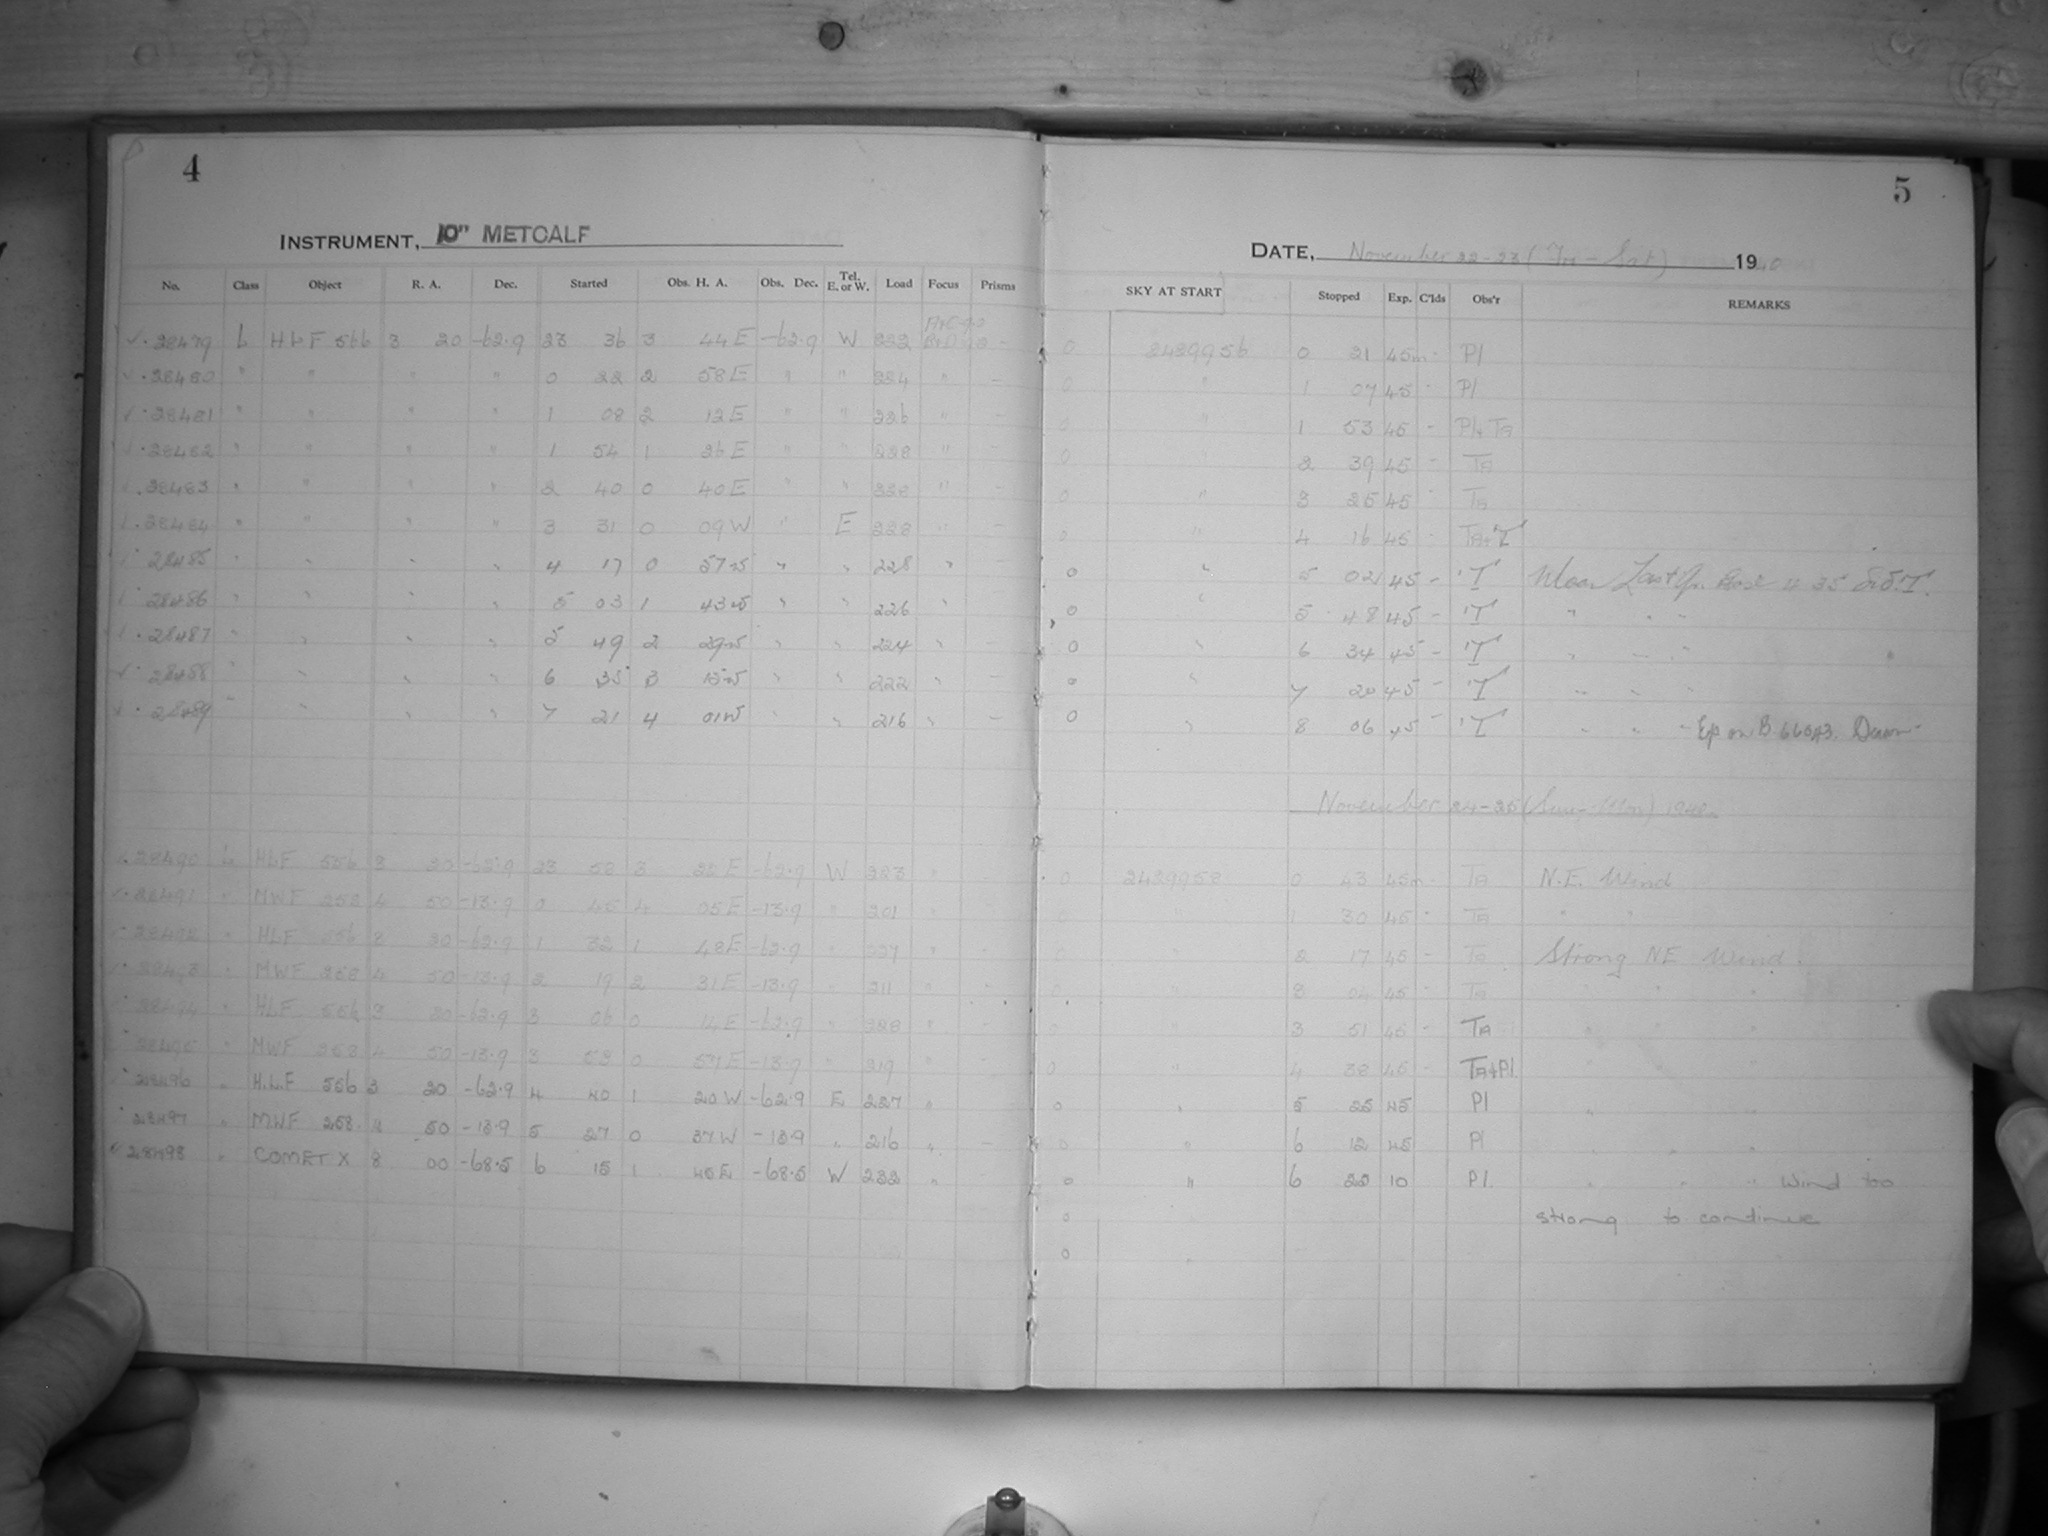 4
INSTRUMENT, 10" METCALF
No. Class Object R. A. Dec. Started Obs. H. A. Obs. Dec. Tel. E. or W. Load Focus Prisms
28479 L HLF 556 3 20 -62.9 23 36 3 44 E -62.9 W 222
28480 " " " " 0 22 2 58 E " " 224 " -
28481 " " " " 1 08 2 12 E " " 226 " -
28482 " " " " 1 54 1 26 E " " 228 " -
28483 " " " " 2 40 0 40 E " " 228 " -
28484 " " " " 3 31 0 09 W " E 228 " -
28485 " " " " 4 17 0 57 W " " 228 "
28486 " " " " 5 03 1 43 W " " 226 "
28487 " " " " 5 49 2 29 W " " 224 "
28488 " " " " 6 35 3 15 W " " 222 " -
28489 " " " " 7 21 4 01 W " " 216 " -
28490 L HLF 556 3 20 -62.9 23 58 3 22 E -62.9 W 223 " -
28491 " MWF 258 4 50 -13.9 0 45 4 05 E -13.9 " 201 "
28492 " HLF 556 3 20 -62.9 1 32 1 48 E -62.9 " 227 " -
28493 " MWF 258 4 50 -13.9 2 19 2 31 E -13.9 " 211 " -
28494 " HLF 556 3 20 -62.9 3 06 0 14 E -62.9 " 228 " -
28495 " MWF 258 4 50 -13.9 3 53 0 57 E -13.9 " 219 " -
28496 " H.L.F 556 3 20 -62.9 4 40 1 20 W -62.9 E 227 "
28497 " MWF 258 4 50 -13.9 5 27 0 37 W -13.9 " 216 " -
28498 " COMET X 8 00 -68.5 6 15 1 45 E -68.5 W 232 "
5
DATE, November 22-23 (Fri - Sat) 1940
SKY AT START Stopped Exp. C'lds Obs'r REMARKS
0 2429956 0 21 45m - Pl
0 " 1 07 45 - Pl
0 " 1 53 45 - Pl+Ta
0 " 2 39 45 - Ta
0 " 3 25 45 - Ta
0 " 4 16 45 - Ta+'T'
0 " 5 02 45 - 'T' Moon Last Qr. Rose 4 35 Sid.T.
0 " 5 48 45 - 'T' " " "
0 " 6 34 45 - 'T' " " "
0 " 7 20 45 - 'T' " " "
0 " 8 06 45 - 'T' " " " - Exp on B 66043. Dawn -
November 24-25 (Sun - Mon) 1940
0 2429958 0 43 45m - Ta N.E. Wind
0 " 1 30 45 - Ta " "
0 " 2 17 45 - Ta Strong NE Wind.
0 " 3 04 45 - Ta " " "
0 " 3 51 45 - Ta " " "
0 " 4 38 45 - Ta+Pl. " " "
0 " 5 25 45 Pl " " "
0 " 6 12 45 Pl " " "
0 " 6 25 10 Pl. " " " Wind too
0 strong to continue
0